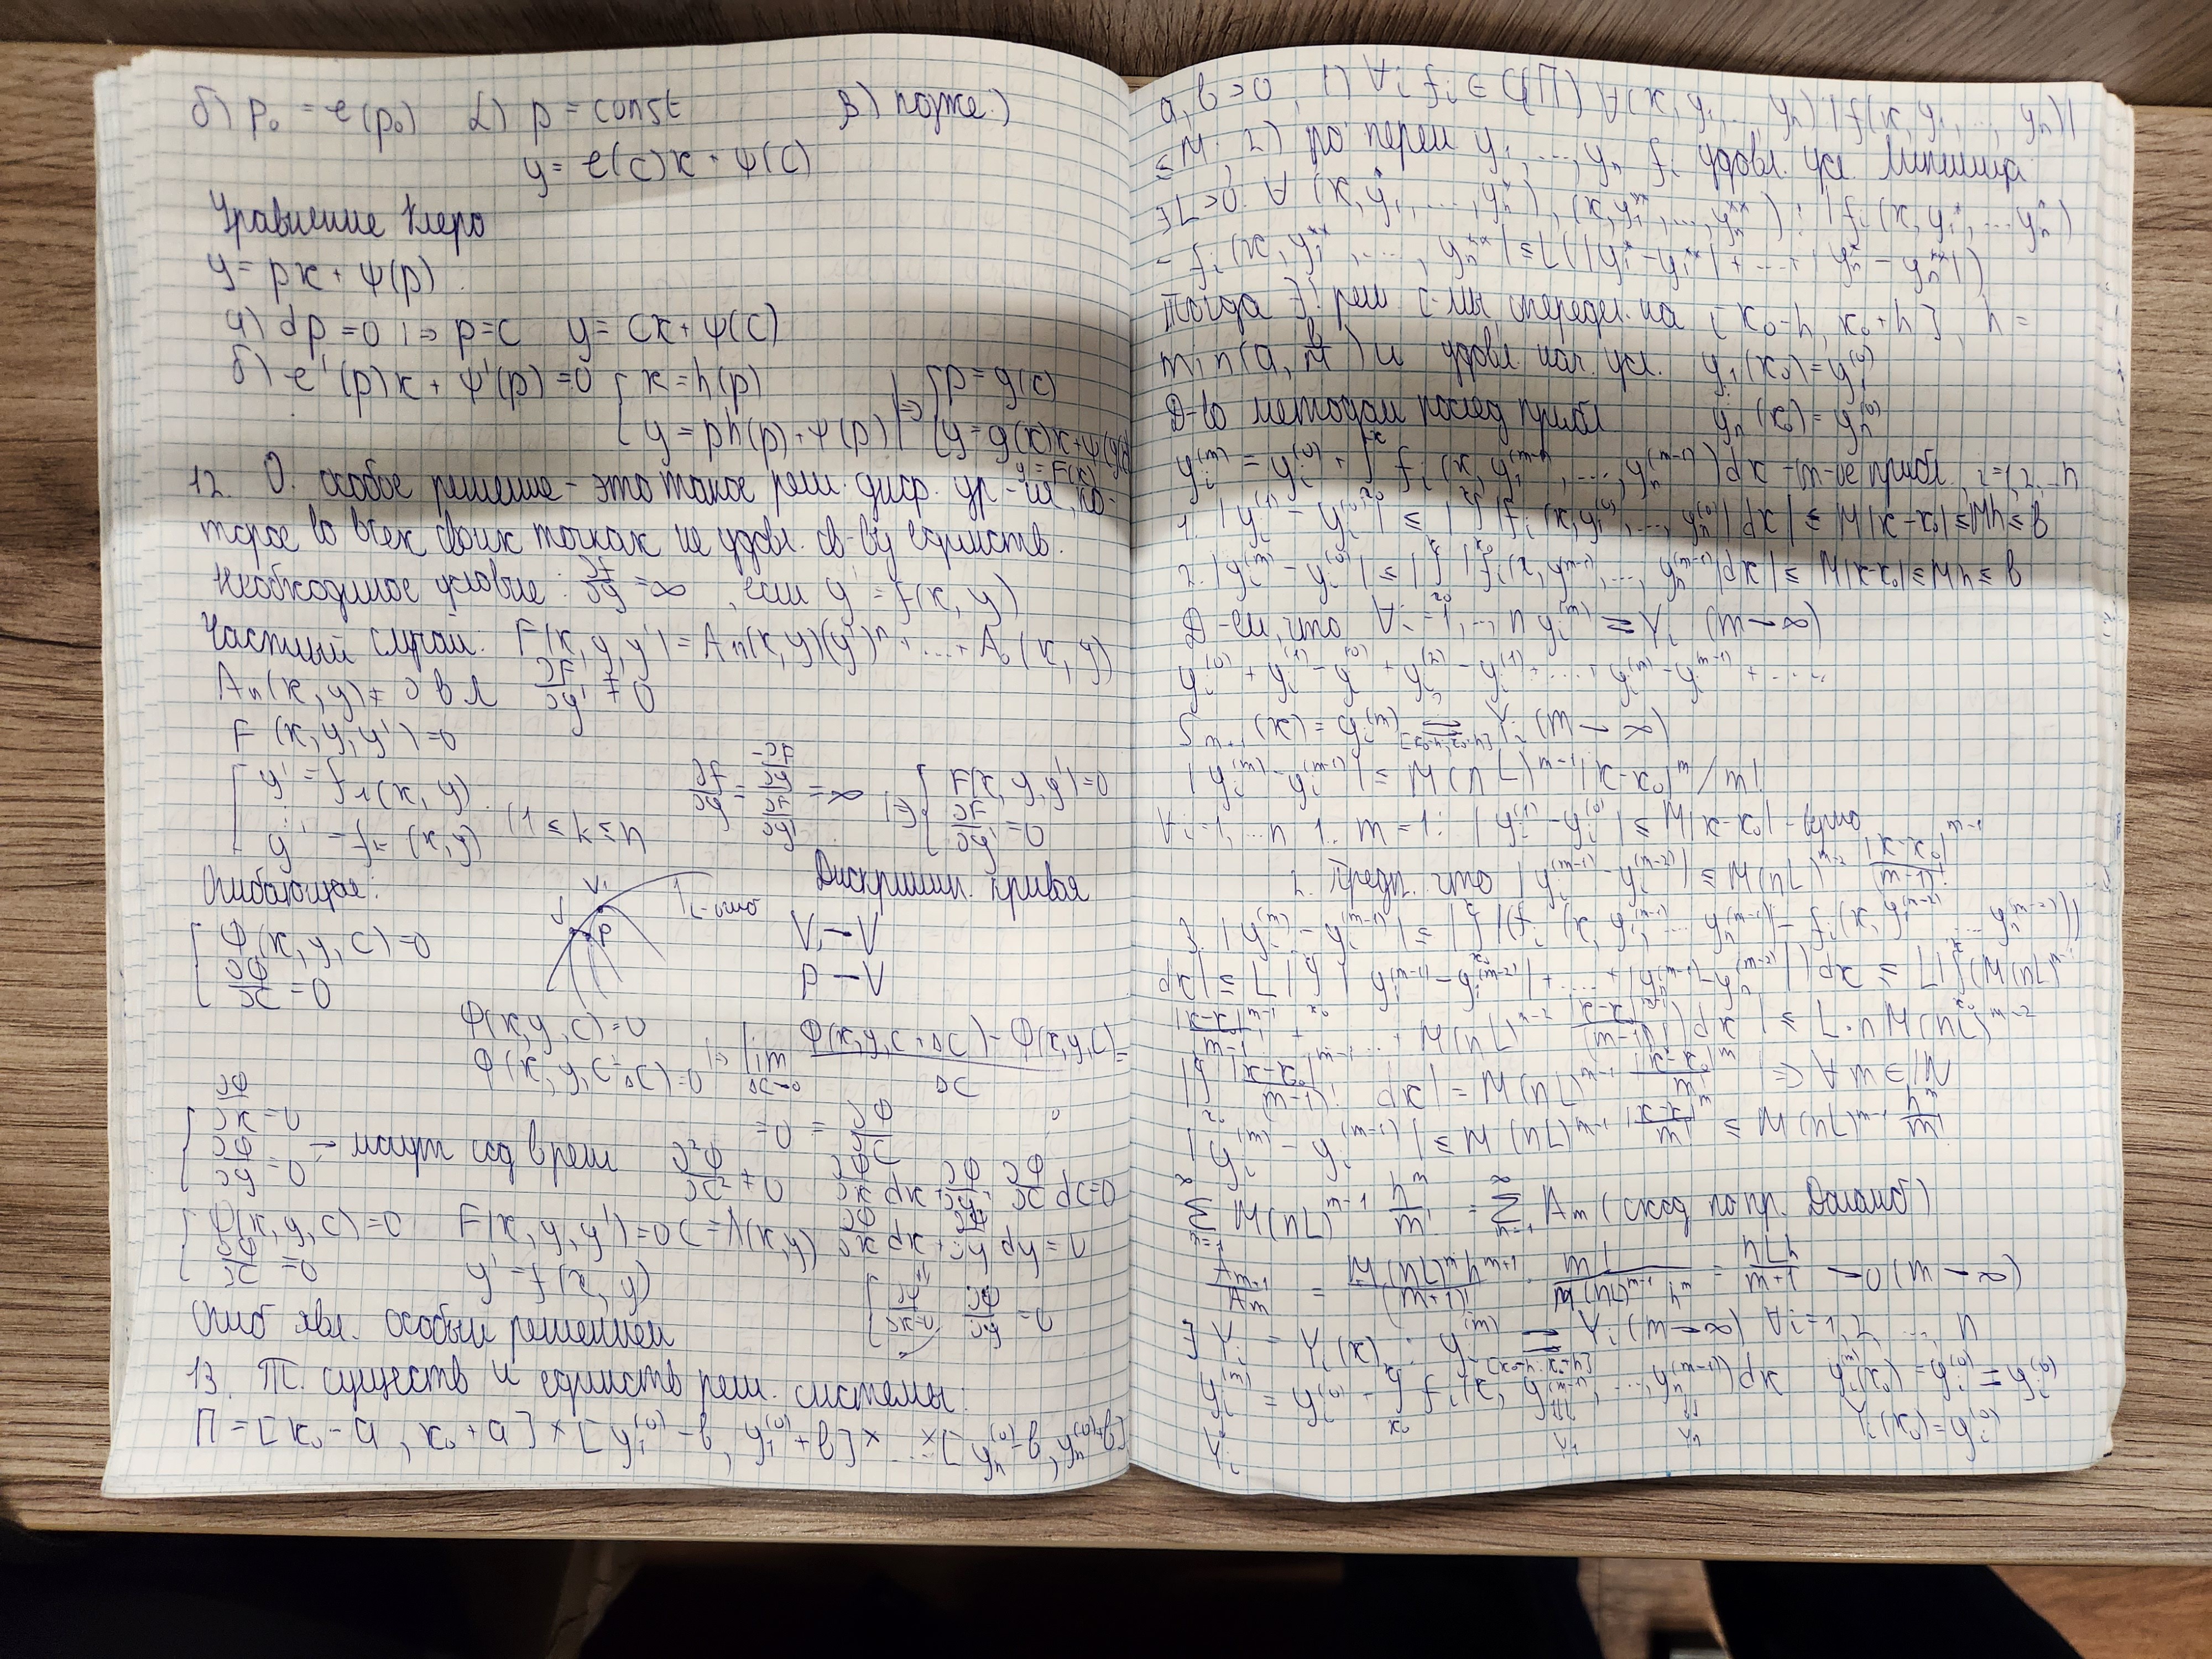 б) p₀ = φ(p₀)   α) p = const   β) позже :)
y = φ(c)x + ψ(c)
Уравнение Клеро
y = px + ψ(p)
а) dp = 0 |⇒ p = c   y = cx + ψ(c)
б) φ'(p)x + ψ'(p) = 0   { x = h(p)   |⇒ { p = g(x)
{ y = ph(p) + ψ(p)   { y = g(x)x + ψ(g(x))
y = F(x)
12. О. особое решение - это такое реш. диф. ур-ия, ко-
торое во всех своих точках не удовл. св-ву единств.
Необходимое условие: ∂f/∂y = ∞, если y' = f(x, y)
Частный случай: F(x, y, y') = Aₙ(x, y)(y')ⁿ + ... + A₀(x, y)
Aₙ(x, y) ≠ 0 в Д   ∂F/∂y' ≠ 0
F(x, y, y') = 0
[ y' = f₁(x, y)   ∂f/∂y = (-∂F/∂y)/(∂F/∂y') = ∞   |⇒ { F(x, y, y') = 0
[ y' = fₖ(x, y)   (1 ≤ k ≤ n)   { ∂F/∂y' = 0
Огибающая:   Дискримин. кривая
{ Φ(x, y, c) = 0   V₁ → V
{ ∂Φ/∂C = 0   P → V
Φ(x, y, C) = 0
Φ(x, y, C + ΔC) = 0   |⇒ lim ΔC→0 (Φ(x, y, C + ΔC) - Φ(x, y, C))/ΔC =
= 0 = ∂Φ/∂C
{ ∂Φ/∂x = 0
{ ∂Φ/∂y = 0   - могут сод в реш   ∂²Φ/∂C² ≠ 0   ∂Φ/∂x dx + ∂Φ/∂y + ∂Φ/∂C dC = 0
{ Φ(x, y, C) = 0   F(x, y, y') = 0   C = λ(x, y)   ∂Φ/∂x dx + ∂Φ/∂y dy = 0
{ ∂Φ/∂C = 0   y' = f(x, y)
{ ∂Φ/∂x = 0   ∂Φ/∂y = 0
Огиб явл. особым решением
13. Т. существ и единств реш. системы:
П = [x₀ - a, x₀ + a] × [y₁⁽⁰⁾ - b, y₁⁽⁰⁾ + b] × ... × [yₙ⁽⁰⁾ - b, yₙ⁽⁰⁾ + b]
a, b > 0, 1) ∀i fᵢ ∈ C(П) ∀(x, y₁, ..., yₙ) |f(x, y₁, ..., yₙ)|
≤ M. 2) по перем y₁, ..., yₙ fᵢ удовл. усл. Липшица
∃L > 0: ∀ (x, y₁*, ..., yₙ*), (x, y₁**, ..., yₙ**): |fᵢ(x, y₁*, ..., yₙ*)
- fᵢ(x, y₁**, ..., yₙ**)| ≤ L(|y₁* - y₁**| + ... + |yₙ* - yₙ**|)
Тогда ∃! реш с-мы определ. на [x₀ - h, x₀ + h], h =
min(a, b/M) и удовл. нач. усл. y₁(x₀) = y₁⁽⁰⁾
Д-во методом послед прибл   yₙ(x₀) = yₙ⁽⁰⁾
yᵢ⁽ᵐ⁾ = yᵢ⁽⁰⁾ + ∫ fᵢ(x, y₁⁽ᵐ⁻¹⁾, ..., yₙ⁽ᵐ⁻¹⁾) dx - m-ое прибл., i = 1, 2 ... n
1. |yᵢ⁽¹⁾ - yᵢ⁽⁰⁾| ≤ |∫ |fᵢ(x, y₁⁽⁰⁾, ..., yₙ⁽⁰⁾)| dx| ≤ M|x - x₀| ≤ Mh ≤ b
2. |yᵢ⁽ᵐ⁾ - yᵢ⁽⁰⁾| ≤ |∫ |fᵢ(x, y₁⁽ᵐ⁻¹⁾, ..., yₙ⁽ᵐ⁻¹⁾)| dx| ≤ M|x - x₀| ≤ Mh ≤ b
Д-ем, что ∀i = 1, ..., n yᵢ⁽ᵐ⁾ ⇉ Yᵢ (m → ∞)
yᵢ⁽⁰⁾ + yᵢ⁽¹⁾ - yᵢ⁽⁰⁾ + yᵢ⁽²⁾ - yᵢ⁽¹⁾ + ... + yᵢ⁽ᵐ⁾ - yᵢ⁽ᵐ⁻¹⁾ + ...
Sₘ₊₁(x) = yᵢ⁽ᵐ⁾ ⇉ Yᵢ (m → ∞)
|yᵢ⁽ᵐ⁾ - yᵢ⁽ᵐ⁻¹⁾| ≤ M(nL)ᵐ⁻¹ |x - x₀|ᵐ / m!
∀i = 1, ... n 1. m = 1: |yᵢ⁽¹⁾ - yᵢ⁽⁰⁾| ≤ M|x - x₀| - было
2. Предп. что |yᵢ⁽ᵐ⁻¹⁾ - yᵢ⁽ᵐ⁻²⁾| ≤ M(nL)ᵐ⁻² |x - x₀|ᵐ⁻¹/(m-1)!
3. |yᵢ⁽ᵐ⁾ - yᵢ⁽ᵐ⁻¹⁾| ≤ |∫ |fᵢ(x, y₁⁽ᵐ⁻¹⁾, ..., yₙ⁽ᵐ⁻¹⁾) - fᵢ(x, y₁⁽ᵐ⁻²⁾, ... yₙ⁽ᵐ⁻²⁾)|
dx| ≤ L |∫ (|y₁⁽ᵐ⁻¹⁾ - y₁⁽ᵐ⁻²⁾| + ... + |yₙ⁽ᵐ⁻¹⁾ - yₙ⁽ᵐ⁻²⁾|) dx| ≤ L|∫ (M(nL)ᵐ⁻²
|x - x₀|ᵐ⁻¹/(m-1)! + ... + M(nL)ᵐ⁻² |x - x₀|ᵐ⁻¹/(m-1)!) dx| ≤ L·n M(nL)ᵐ⁻²
|∫ |x - x₀|ᵐ⁻¹/(m-1)! dx| = M(nL)ᵐ⁻¹ |x - x₀|ᵐ/m! ⇒ ∀ m ∈ N
|yᵢ⁽ᵐ⁾ - yᵢ⁽ᵐ⁻¹⁾| ≤ M(nL)ᵐ⁻¹ |x - x₀|ᵐ/m! ≤ M(nL)ᵐ⁻¹ hᵐ/m!
∑ M(nL)ᵐ⁻¹ hᵐ/m! = ∑ Aₘ (сход по пр. Даламб)
Aₘ₊₁/Aₘ = M(nL)ᵐhᵐ⁺¹/(m+1)! · m!/(M(nL)ᵐ⁻¹hᵐ) = hLn/(m+1) → 0 (m → ∞)
∃ Yᵢ = Yᵢ(x): yᵢ⁽ᵐ⁾ ⇉ Yᵢ (m → ∞) ∀i = 1, 2, ... n
yᵢ⁽ᵐ⁾ = yᵢ⁽⁰⁾ + ∫ fᵢ(x, y₁⁽ᵐ⁻¹⁾, ..., yₙ⁽ᵐ⁻¹⁾) dx   yᵢ⁽ᵐ⁾(x₀) = yᵢ⁽⁰⁾ = yᵢ⁽⁰⁾
Yᵢ   Y₁   Yₙ   Yᵢ(x₀) = yᵢ⁽⁰⁾